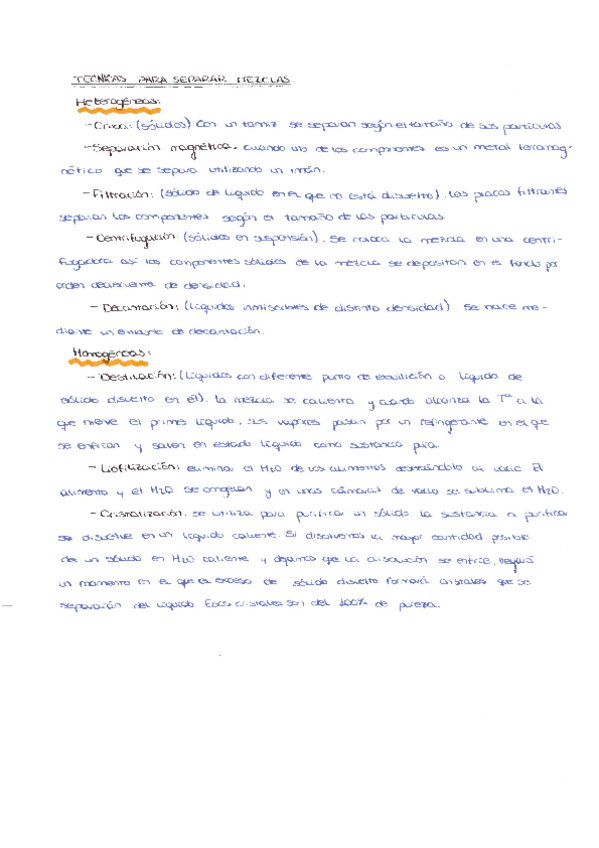 TECNICAS PARA SEPARAR MEZCLAS
Heterogéneas:
- Criba: (sólidos) Con un tamiz se separan según el tamaño de sus partículas
- Separación magnética. cuando uno de los componentes es un metal ferromag-
nético que se separa utilizando un imán.
- Filtración: (sólido de líquido en el que no está disuelto). Las placas filtrantes
separan los componentes según el tamaño de las partículas.
- Centrifugación: (sólidos en suspensión). Se coloca la mezcla en una centri-
fugadora así los componentes sólidos de la mezcla se depositan en el fondo por
orden decreciente de densidad.
- Decantación: (líquidos inmiscibles de distinta densidad) se hace me-
diante un embudo de decantación.
Homogéneas:
- Destilación: (Líquidos con diferente punto de ebullición o líquido de
sólido disuelto en él). la mezcla se calienta y cuando alcanza la Tª a la
que hierve el primer líquido, sus vapores pasan por un refrigerante en el que
se enfrían y salen en estado líquido como sustancia pura.
- Liofilización: elimina el H2O de los alimentos al vacío. El
alimento y el H2O se congelan y en unas cámaras de vacío se sublima el H2O.
- Cristalización. se utiliza para purificar un sólido. La sustancia a purificar
se disuelve en un líquido caliente. Si disolvemos la mayor cantidad posible
de un sólido en H2O caliente y dejamos que la disolución se enfríe, llegará
un momento en el que el exceso de sólido disuelto formará cristales que se
separarán del líquido. Esos cristales son del 100% de pureza.